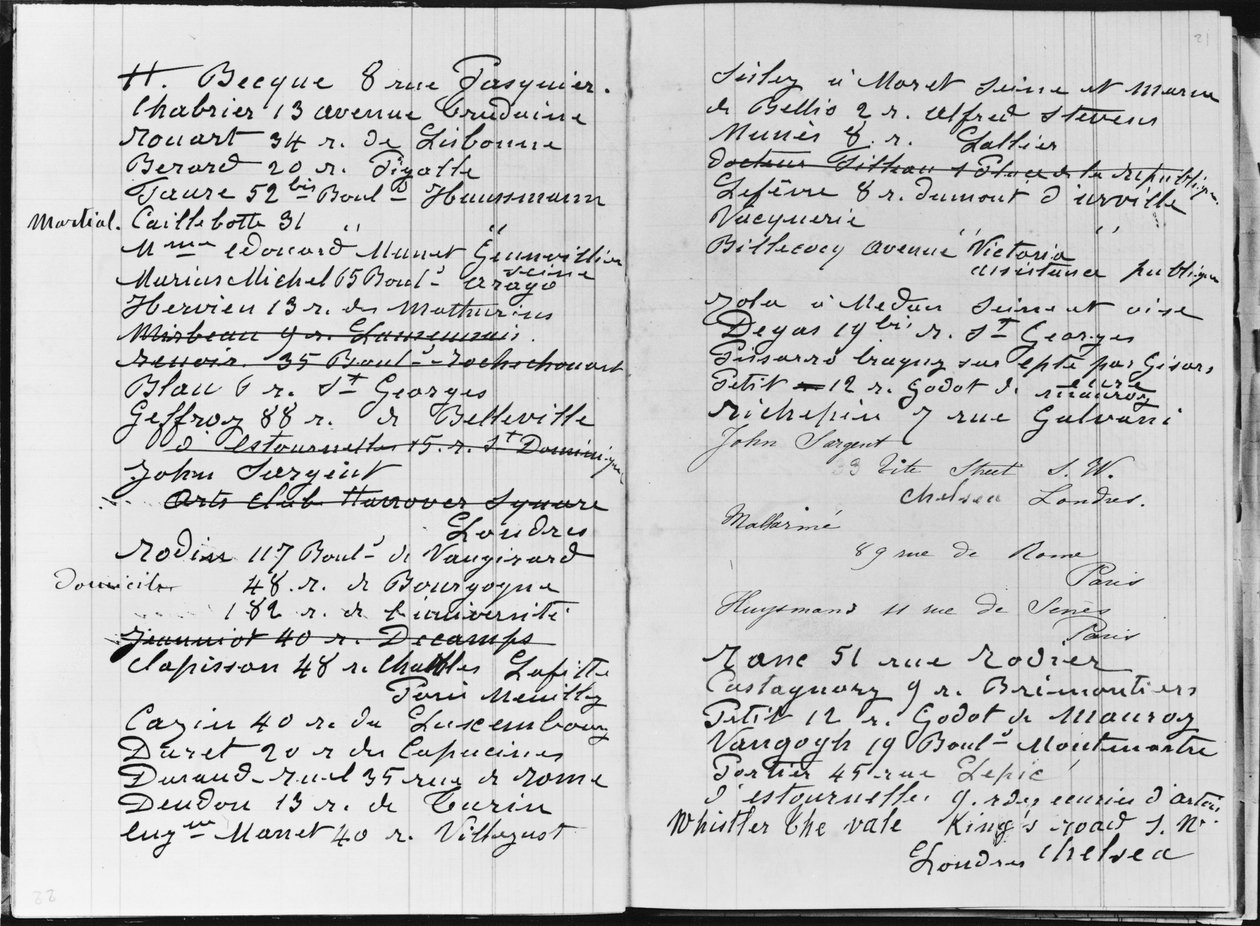 H. Becque 8 rue Pasquier.
Chabrier 13 avenue Trudaine
Rouart 34 r. de Lisbonne
Berard 20 r. Pigalle
Faure 52 bis Boul d Haussmann
Martial. Caillebotte 31 " "
Mme edouard Manet Gennevilliers
seine
Marius Michel 65 Boul d Arago
Hervieu 13 r. des Mathurins
Mirbeau 9 r.
Renoir. 35 Boul d Rochechouart
Blau 6 r. St Georges
Geffroy 88 r. de Belleville
d'estournelles 15. r. St Dominique
John Sargent
Arts Club Hanover Square
Londres
Rodin 117 Boul d de Vaugirard
Domicile 48. r. de Bourgogne
182 r. de l'université
Jeanniot 40 r. Decamps
Clapisson 48 r. Charles Lafitte
Paris Neuilly
Cazin 40 r. du Luxembourg
Duret 20 r des Capucines
Durand-Ruel 35 rue de Rome
Deudon 13 r. de Turin
eugne Manet 40 r. Villejust
22
21
Sisley à Moret Seine et Marne
de Bellio 2 r. Alfred Stevens
Munès 8. r. Lallier
docteur 1 Place de la république.
Lefèvre 8 r. dumont d'urville
Vacquerie " "
Billecocq avenue Victoria
assistance publique
Zola à Medan Seine et oise
Degas 19 bis r. St Georges
Pissarro Eragny sur epte par Gisors
eure
Petit 12 r. Godot de mauroy
Richepin 7 rue Galvani
John Sargent
33 Tite Street S. W.
Chelsea Londres.
Mallarmé
89 rue de Rome
Paris
Huysmans 11 rue de Sèvres
Paris
Ranc 51 rue Rodier
Castagnary 9 r. Brémontiers
Petit 12 r. Godot de Mauroy
Vangogh 19 Boul d Montmartre
Portier 45 rue Lepic
d'estournelles 9. r des ecuries d'artois
Whistler The vale King's road S. W.
Londres Chelsea